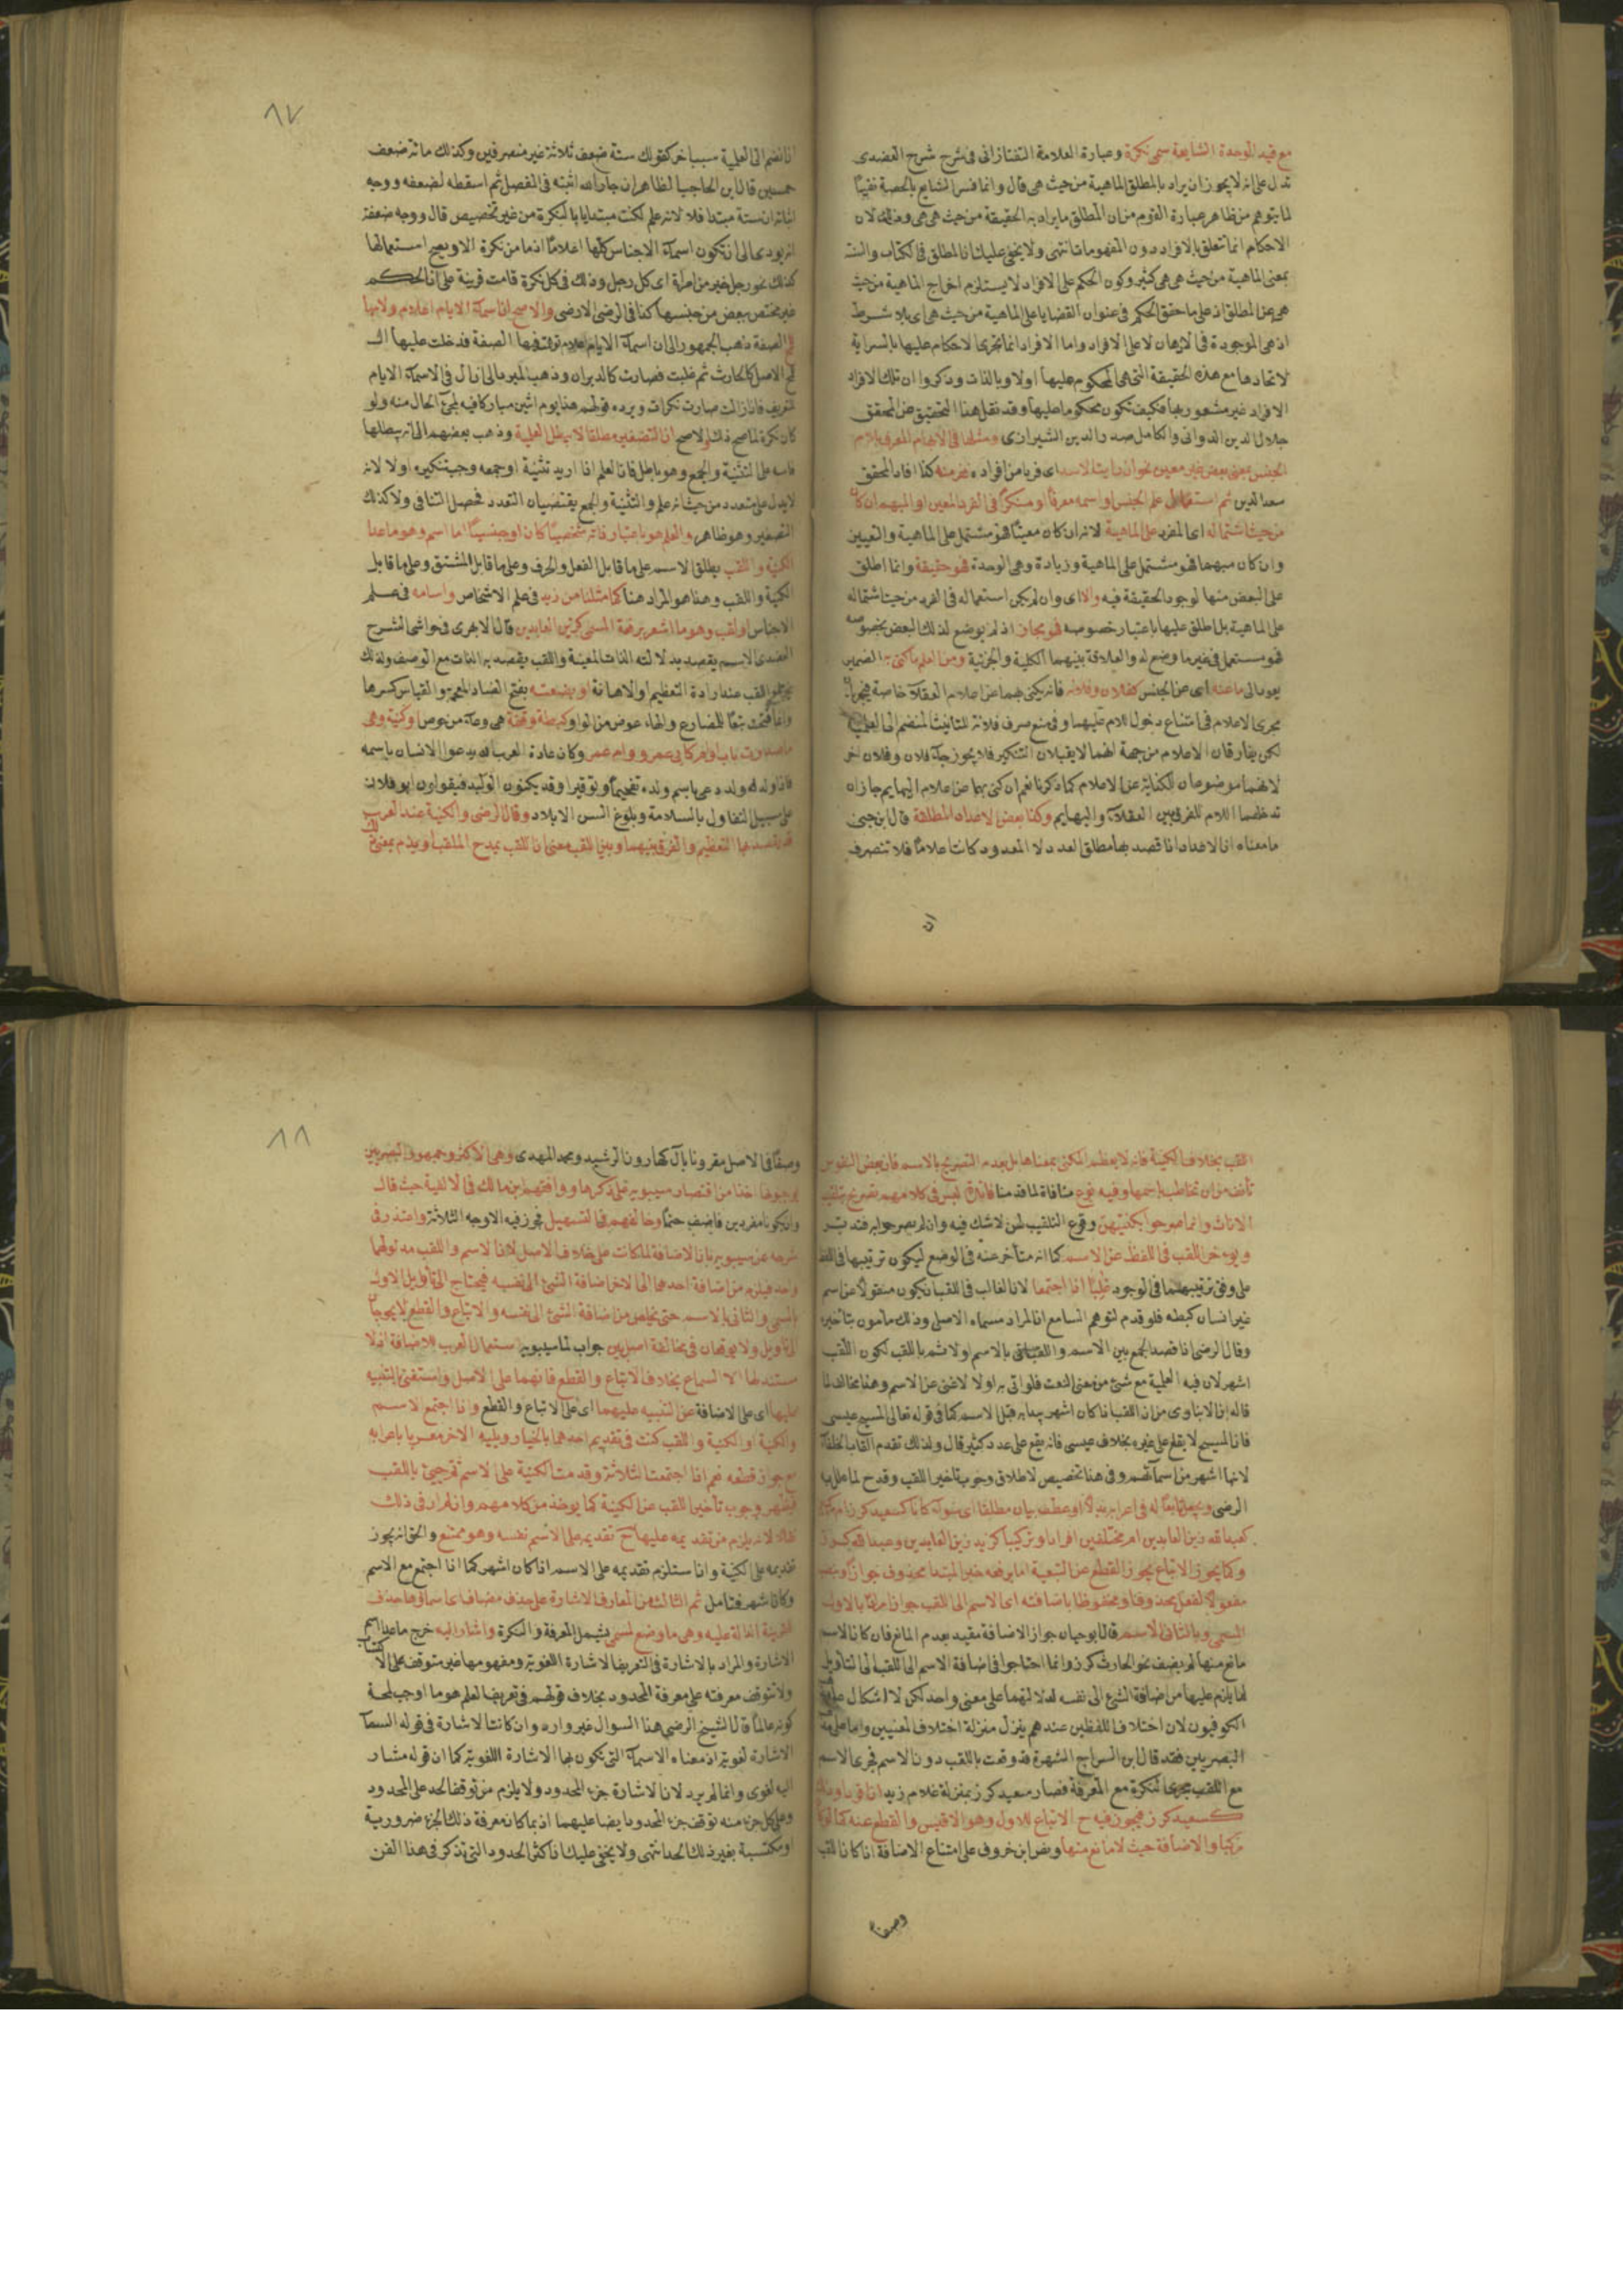 مع قيد الوحدة الشايعة سمى نكرة وعبارة العلامة التفتازانى فى شرح شرح العضدى
تدل على انه لا يجوز ان يراد بالمطلق الماهية من حيث هى قال وانما فسر الشايع بالحصة نفيا
لما يتوهم من ظاهر عبارة القوم من ان المطلق ما يراد به الحقيقة من حيث هى هى وذلك لان
الاحكام انما تتعلق بالافراد دون المفهومات انتهى ولا يخفى عليك ان المطلق فى الكتاب والسنة
بمعنى الماهية من حيث هى هى كثير وكون الحكم على الافراد لا يستلزم اخراج الماهية من حيث
هى عن المطلق اذ على ما حقق الحكم فى عنوان القضايا على الماهية من حيث هى اى بلا شرط
اذ هى الموجودة فى الاذهان لا على الافراد واما الافراد انما تجرى الاحكام عليها بالسراية
لاتحادها مع هذه الحقيقة التى هى المحكوم عليها اولا وبالذات وذكروا ان تلك الافراد
الافراد غير مشعور بها فكيف تكون محكوما عليها وقد نقل هذا التحقيق عن المحقق
جلال الدين الدوانى والكامل صدر الدين الشيرازى ومثلها فى الابهام المعرف بلام
الجنس بمعنى بعض غير معين نحو ان رايت الاسد اى فردا من افراده ففر منه كذا افاد المحقق
سعد الدين ثم استعمال علم الجنس او اسمه معرفا او منكرا فى الفرد المعين او المبهم ان كان
من حيث اشتماله اى المفرد على الماهية لانه ان كان معينا فهو مشتمل على الماهية والتعيين
وان كان مبهما فهو مشتمل على الماهية وزيادة وهى الوحدة فهو حقيقة وانما اطلق
على البعض منها لوجود الحقيقة فيه والا اى وان لم يكن استعماله فى الفرد من حيث اشتماله
على الماهية بل اطلق عليها باعتبار خصوصه فهو مجاز اذ لم يوضع لذلك البعض بخصوصه
فهو مستعمل فى غير ما وضع له والعلاقة بينهما الكلية والجزئية ومن العلم ما كنى به الضمير
يعود الى ما عنه اى عن الجنس كفلان وفلانة فانه يكنى بهما عن اعلام العقلاء خاصة فيجريان
مجرى الاعلام فى امتناع دخول اللام عليهما وفى منع صرف فلانة للتانيث المنضم الى العلمية
لكن يفارقان الاعلام من جهة انهما لا يقبلان التنكير فلا يجوز جاء فلان وفلان اخر
لانهما موضوعان للكناية عن الاعلام كما ذكرنا نعم ان كنى بهما عن اعلام البهايم جاز ان
تدخلهما اللام للفرق بين العقلاء والبهايم وكذا بعض الاعداد المطلقة قال ابن جنى
ما معناه ان الاعداد اذا قصد بها مطلق العدد لا المعدود كانت اعلاما فلا تنصرف
ان
٨٧
اذا انضم الى العلمية سببا اخر كقولك ستة ضعف ثلاثة غير منصرفين وكذلك مائة ضعف
خمسين قال ابن الحاجب الظاهر ان جار الله اثبته فى المفصل ثم اسقطه لضعفه ووجه
اثباته ان ستة مبتدا فلولا انه علم لكنت مبتدايا بالنكرة من غير تخصيص قال ووجه ضعفه
انه يودى الى ان تكون اسماء الاجناس كلها اعلاما اذ ما من نكرة الا ويصح استعمالها
كذلك نحو رجل خير من امرأة اى كل رجل وذلك فى كل نكرة قامت قرينة على ان الحكم
غير مختص ببعض من جنسها كذا فى الرضى الارضى والاصح ان اسماء الايام اعلام ولامها
للمح الصفة ذهب الجمهور الى ان اسماء الايام اعلام توهمت فيها الصفة فدخلت عليها ال
للمح الاصل كالحارث ثم غلبت فصارت كالدبران وذهب المبرد الى ان ال فى الاسماء الايام
للتعريف فاذا زالت صارت نكرات ويرده قولهم هذا يوم اثنين مباركا فيه لمجئ الحال منه ولو
كان نكرة لما صح ذلك والاصح ان التصغير مطلقا لا يبطل العلمية وذهب بعضهم الى انه يبطلها
قاسه على التثنية والجمع وهو باطل فان العلم اذا اريد تثنيته او جمعه وجب تنكيره اولا لانه
لا يدل على متعدد من حيث انه علم والتثنية والجمع يقتضيان التعدد فحصل التنافى ولا كذلك
التصغير وهو ظاهر والعلم هو باعتبار ذاته شخصيا كان او جنسيا اما اسم وهو ما عدا
الكنية واللقب يطلق الاسم على ما قابل الفعل والحرف وعلى ما قابل المشتق وعلى ما قابل
الكنية واللقب وهذا هو المراد هنا كما مثلنا من زيد فى علم الاشخاص واسامة فى علم
الاجناس او لقب وهو ما اشعر برفعة المسمى كزين العابدين قال الابهرى فى حواشى الشرح
العضدى الاسم يقصد بدلالته الذات المعينة واللقب يقصد به الذات مع الوصف ولذلك
يختار اللقب عند ارادة التعظيم او الاهانة او بضعته بفتح الضاد المعجمة والقياس كسرها
وانما فتحت تبعا للمضارع والهاء عوض من الواو كبطة وقفة هى وعاء من خوص او كنية وهى
ما صدرت باب او ام كابى عمرو وام عمر وكان عادة العرب انه يدعو الانسان باسمه
فاذا ولد له ولد دعى باسم ولده تفخيما وتوقيرا وقد يكنون الوليد فيقولون ابو فلان
على سبيل التفاول بالسلامة وبلوغ السن الايلاد وقال الرضى والكنية عند العرب
قد يقصد بها التعظيم والفرق بينهما وبين اللقب معنى ان اللقب يمدح الملقب او يذم بمعنى ذلك
اللقب بخلاف الكنية فانه لا يعظم المكنى بمعناها بل بعدم التصريح بالاسم فان بعض النفوس
تأنف من ان تخاطب باسمها وفيه نوع منافاة لما قدمنا فائدة ليس فى كلامهم تصريح بتلقيب
الاناث وانما صرحوا بكنيتهن وقوع التلقيب لهن لاشك فيه وان لم يصرحوا به فتدبر
ويوخر اللقب فى اللفظ عن الاسم كما انه متأخر عنه فى الوضع ليكون ترتيبها فى اللفظ
على وفق ترتيبهما فى الوجود غلبا اذا اجتمعا لان الغالب فى اللقب ان يكون منقولا عن اسم
غير انسان كبطه فلو قدم لتوهم السامع ان المراد مسماه الاصلى وذلك مأمون بتأخيره
وقال الرضى اذا قصد الجمع بين الاسم واللقب اتى بالاسم اولا ثم باللقب لكون اللقب
اشهر لان فيه العلمية مع شئ من معنى النعت فلو اتى به اولا لاغنى عن الاسم وهذا مخالف لما
قاله ابن الانبارى من ان اللقب اذا كان اشهر يبدا به قبل الاسم كما فى قوله تعالى المسيح عيسى
فان المسيح لا يقع على غيره بخلاف عيسى فانه يقع على عدد كثير قال ولذلك تقدم القاب الخلفاء
لانها اشهر من اسمائهم وفى هذا تخصيص لاطلاق وجوب تاخير اللقب وقدح لما علل به
الرضى ويجعل تابعا له فى اعرابه بدلا او عطف بيان مطلقا اى سواء كانا كسعيد كرز ام
كعبد الله زين العابدين ام مختلفين افرادا وتركيبا كزيد زين العابدين وعبد الله كرز
وكما يجوز الاتباع يجوز القطع عن التبعية اما برفعه خبر المبتدا محذوف جوازا ونصبه
مفعولا لفعل محذوف او مخفوظا باضافته اى الاسم الى اللقب جوازا مرادا بالاول
المسمى وبالثانى الاسم قال ابو حيان جواز الاضافة مقيد بعدم المانع فان كان الاسم
مانع منها لم يضف نحو الحارث كرز وانما احتاجوا فى اضافة الاسم الى اللقب الى التاويل
لما يلزم عليها من اضافة الشئ الى نفسه لدلالتهما على معنى واحد لكن لا اشكال على
الكوفيون لان اختلاف اللفظين عندهم ينزل منزلة اختلاف المعنيين واما على
البصريين فقد قال ابن السراج الشهرة قد وقعت باللقب دون الاسم فجرى الاسم
مع اللقب مجرى النكرة مع المعرفة فصار سعيد كرز بمنزلة غلام زيد
كسعيد كرز فيجوز فيه ح الاتباع للاول وهو الاقيس والقطع عنه كما لو
تركبا والاضافة حيث لا مانع منها ونص ابن خروف على امتناع الاضافة اذا كان اللقب
وصفا
٨٨
وصفا فى الاصل مقرونا بال كهارون الرشيد ومحمد المهدى وهى الاكثر وجمهور البصريين
يوجبونها اخذا من اقتصار سيبويه على ذكرها ووافقهم ابن مالك فى الالفية حيث قال
وان يكونا مفردين فاضف حتما وخالفهم فى التسهيل فجوز فيه الاوجه الثلاثة واعتذر فى
شرحه عن سيبويه بان الاضافة لما كانت على خلاف الاصل لان الاسم واللقب مدلولهما
واحد فيلزم من اضافة احدهما الى الاخر اضافة الشئ الى نفسه فيحتاج الى تأويل الاول
بالمسمى والثانى بالاسم حتى يخلص من اضافة الشئ الى نفسه والاتباع والقطع لا يحوجان
الى تاويل ولا يوقعان فى مخالفة اصل بين جواب لما سيبويه استعمال العرب للاضافة اذ لا
مستند لها الا السماع بخلاف الاتباع والقطع فانهما على الاصل واستغنى بالتنبيه
عليها اى على الاضافة عن التنبيه عليهما اى على الاتباع والقطع واذا اجتمع الاسم
والكنية او الكنية واللقب كنت فى تقديم احدهما بالخيار ويليه الاخر معربا باعرابه
مع جواز قطعه نعم اذا اجتمعت الثلاثة وقدمت الكنية على الاسم ثم جيئ باللقب
فيظهر وجوب تأخير اللقب عن الكنية كما يوخذ من كلامهم وان لم ار فى ذلك
نقلا لانه يلزم من تقديمه عليها ح تقديمه على الاسم نفسه وهو ممتنع والحق انه يجوز
تقديمه على الكنية وان استلزم تقديمه على الاسم اذا كان اشهر كما اذا اجتمع مع الاسم
وكان اشهر فتامل ثم الثالث من المعارف الاشارة على حذف مضاف اى اسماؤها حذف
لقرينة الدالة عليه وهى ما وضع لمسمى يشمل المعرفة والنكرة واشار اليه خرج ما عدا اسم
الاشارة والمراد بالاشارة فى التعريف الاشارة اللغوية ومفهومها غير متوقف على الاكتساب
ولا تتوقف معرفته على معرفة المحدود بخلاف قولهم فى تعريف العلم هو ما اوجب لمحله
كونه عالما قال الشيخ الرضى هذا السوال غير وارد وان كانت الاشارة فى قوله السماء
الاشارة لغوية اذ معناه الاسماء التى تكون بها الاشارة اللغوية كما ان قوله مشار
اليه لغوى وانما لم يرد لان الاشارة جزء المحدود ولا يلزم من توقف الحد على المحدود
وعلى كل جزء منه توقف جزء المحدود ايضا عليهما اذ ربما كان معرفة ذلك الجزء ضرورية
او مكتسبة بغير ذلك الحد انتهى ولا يخفى عليك ان اكثر الحدود التى تذكر فى هذا الفن